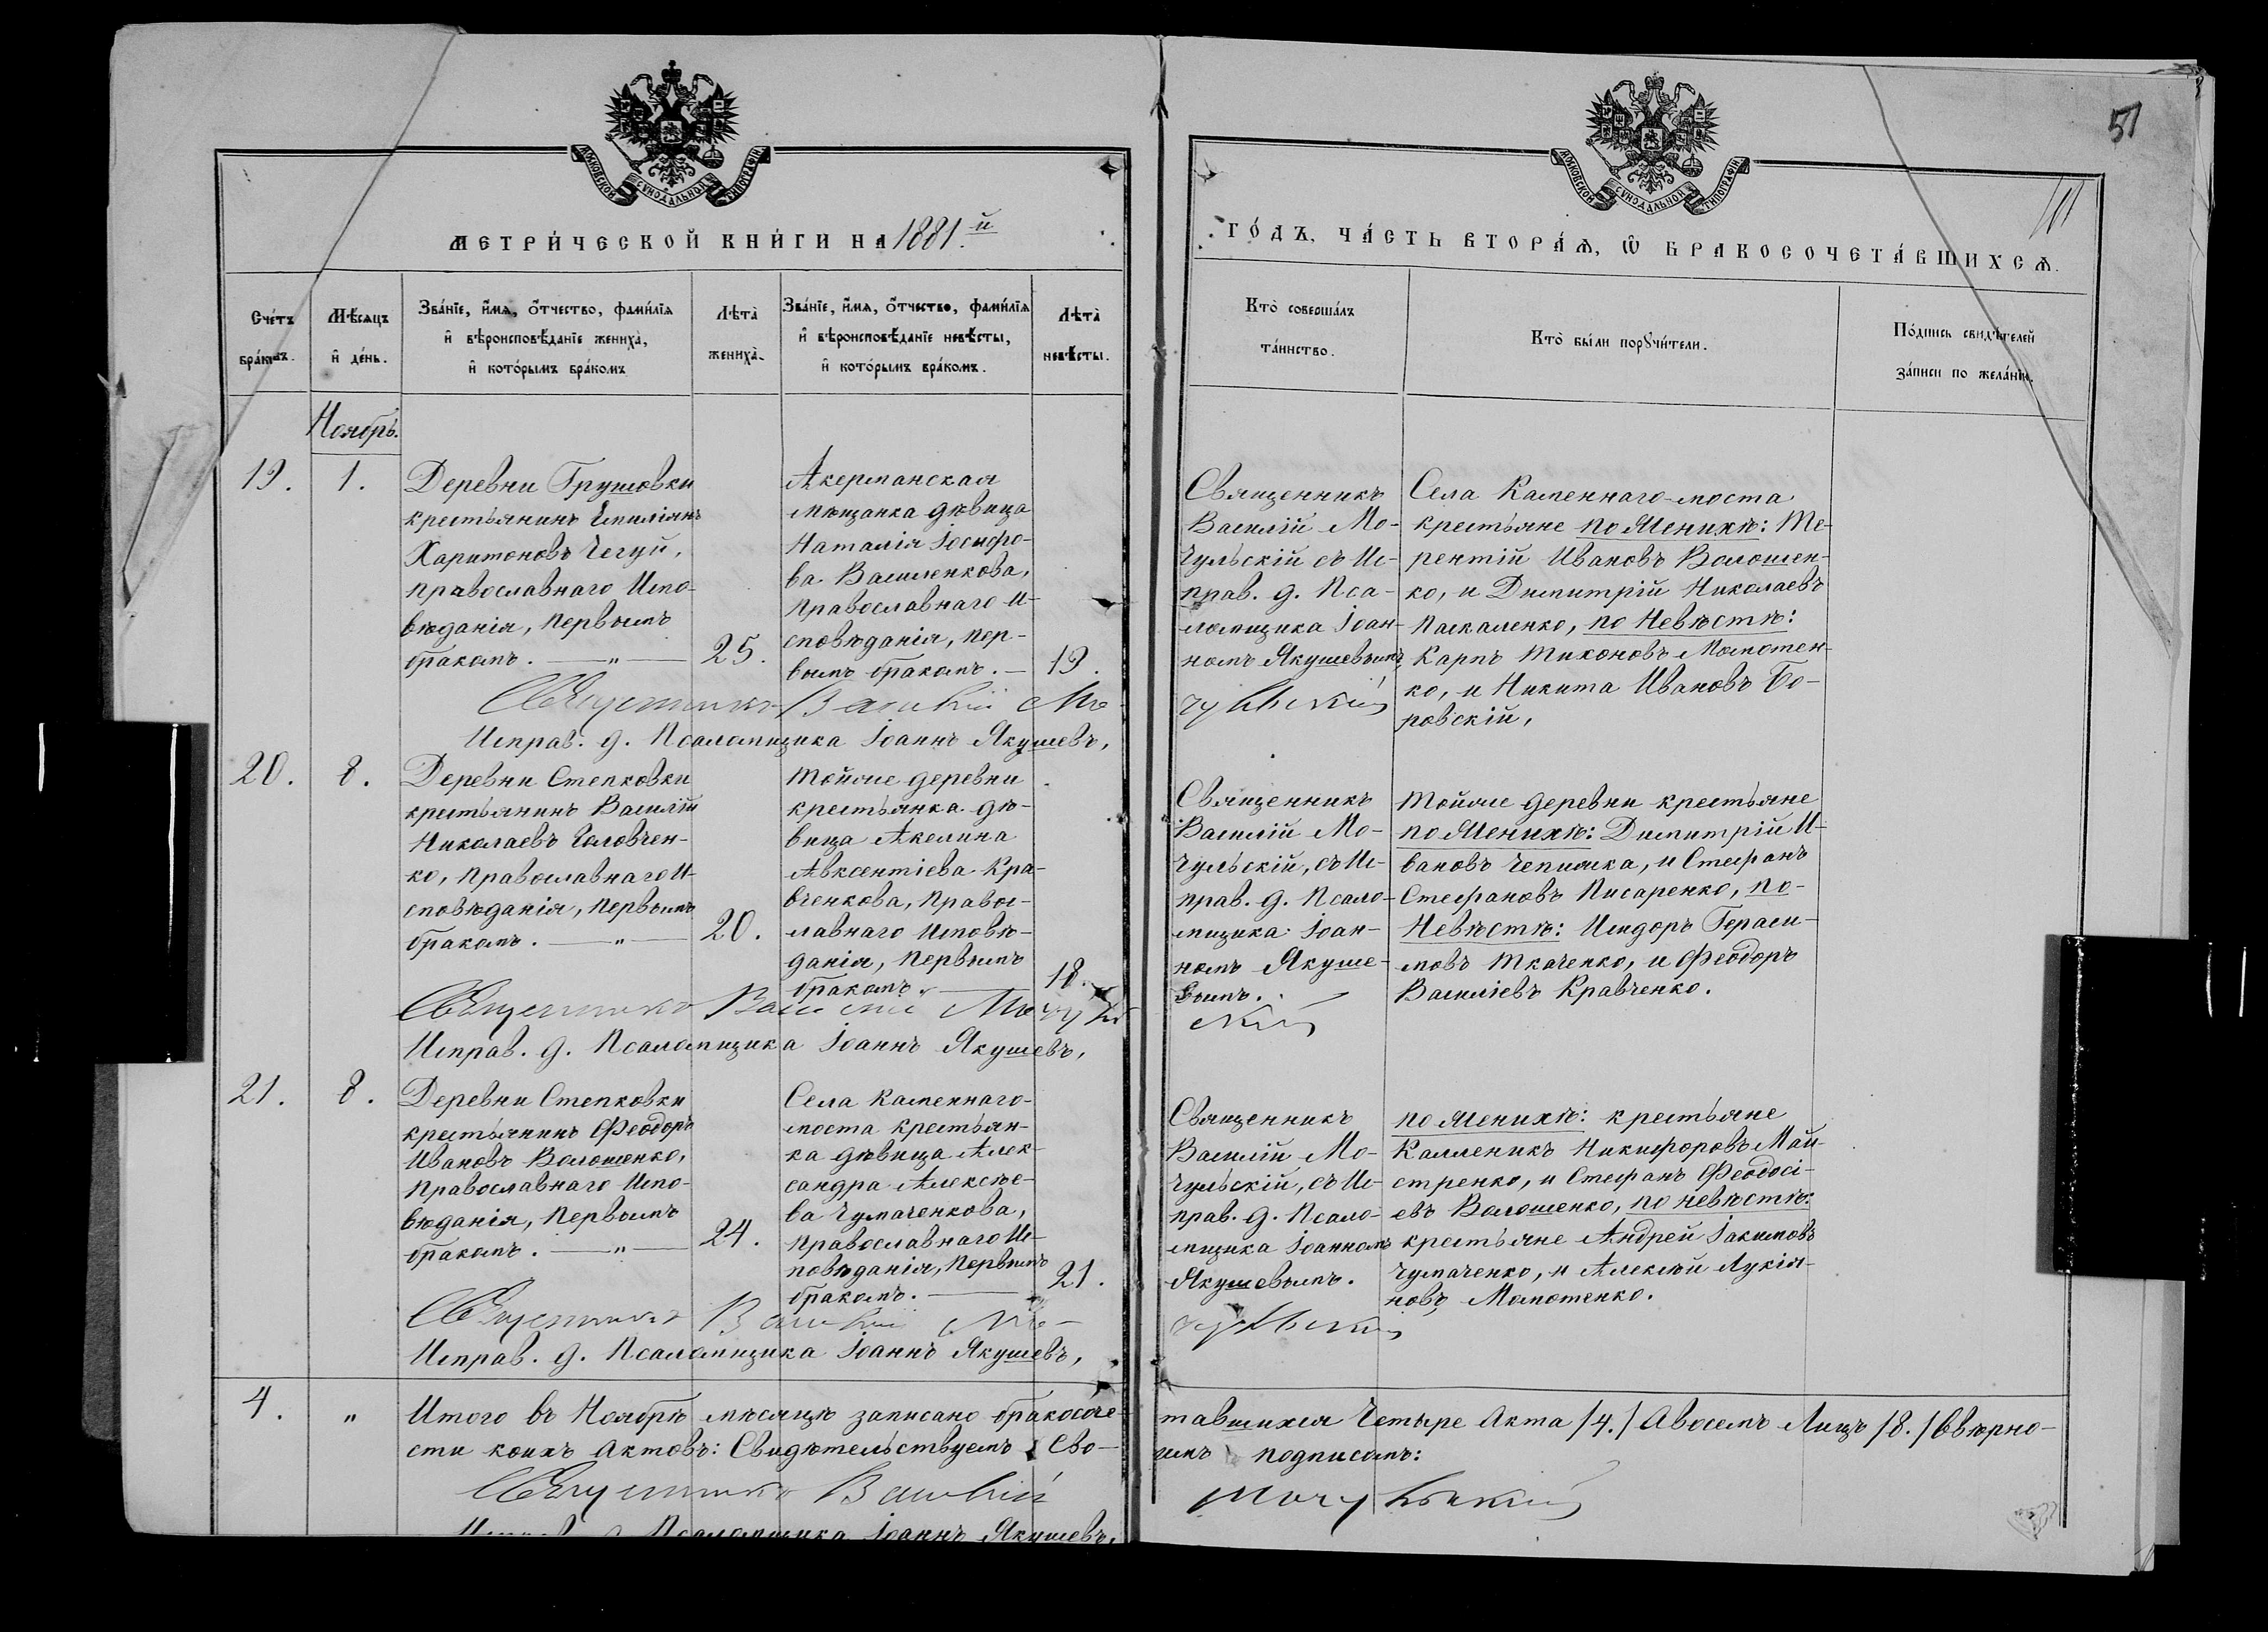 51
МОСКОВСКОЙ СѴНОДАЛЬНОЙ ТИПОГРАФІИ
МОСКОВСКОЙ СѴНОДАЛЬНОЙ ТИПОГРАФІИ
МЕТРИ́ЧЕСКОЙ КНИ́ГИ НА 1881.й
ГО́ДЪ, ЧА́СТЬ ВТОРА́Ѧ, Ѡ҆ БРАКОСОЧЕТА́ВШИХСѦ.
Сче́тъ
бра́ковъ.
Мѣ́сяцъ
и҆ де́нь.
Зва́нїе, и҆́мѧ, о҆́тчество, фами́лїѧ
и҆ вѣроисповѣ́данїе жениха̀,
и҆ кото́рымъ бра́комъ
Лѣта̀
жениха̀.
Зва́нїе, и҆́мѧ, о҆́тчество, фами́лїѧ
и҆ вѣроисповѣ́данїе невѣ́сты,
и҆ кото́рымъ бра́комъ.
Лѣта̀
невѣ́сты.
Кто̀ соверша́лъ
та́инство.
Кто̀ бы́ли порꙋчи́тели.
По́дпись свидѣ́телей
за́писи по жела́нїю.
Ноябрь.
19.
1.
Деревни Грушовки
крестьянинъ Емиліанъ
Харитоновъ Чегуй,
православнаго Испо-
вѣданія, первымъ
бракомъ. — " —
25.
Акерманская
мѣщанка дѣвица
Наталія Іосифо-
ва Василенкова,
православнаго и-
сповѣданія, пер-
вымъ бракомъ. —
19.
Священникъ
Василій Мо-
чульскій съ Ис-
прав. д. Пса-
ломщика Іоан-
номъ Якушевымъ
Села Каменнаго-моста
крестьяне по Женихѣ: Те-
рентій Ивановъ Волошен-
ко, и Димитрій Николаевъ
Паскаленко, по Невѣстѣ:
Карпъ Тихоновъ Мамотен-
ко, и Никита Ивановъ Бо-
ровскій,
Священникъ Василій Мо-
чульскій
Исправ. д. Псаломщика Іоаннъ Якушевъ,
20.
8.
Деревни Степковки
крестьянинъ Василій
Николаевъ Головчен-
ко, православнаго И-
сповѣданія, первымъ
бракомъ. — " —
20.
Тойже деревни
крестьянка дѣ-
вица Акелина
Авксентіева Кра-
вченкова, Правос-
лавнаго Исповѣ-
данія, первымъ
бракомъ. —
18.
Священникъ
Василій Мо-
чульскій, съ Ис-
прав. д. Псало-
мщика Іоан-
номъ Якуше-
вымъ.
Тойже деревни крестьяне
по Женихѣ: Димитрій И-
вановъ Чепижка, и Стефанъ
Стефановъ Писаренко, по-
Невѣстѣ: Исидоръ Гераси-
мовъ Ткаченко, и Феодоръ
Василіевъ Кравченко.
Священникъ Василій Мочуль
скій
Исправ. д. Псаломщика Іоаннъ Якушевъ,
21.
8.
Деревни Степковки
крестьянинъ Феодоръ
Ивановъ Волошенко,
Православнаго Испо-
вѣданія, Первымъ
бракомъ. — " —
24.
Села Каменнаго-
моста крестьян-
ка дѣвица Алек-
сандра Алексѣе-
ва Чумаченкова,
Православнаго Ис-
повѣданія, Первымъ
бракомъ. —
21.
Священникъ
Василій Мо-
чульскій, съ Ис-
прав. д. Псало-
мщика Іоанномъ
Якушевымъ.
по Женихѣ: крестьяне
Каленикъ Никифоровъ Май-
стренко, и Стефанъ Феодосі-
евъ Волошенко, по невѣстѣ:
крестьяне Андрей Іакимовъ
Чумаченко, и Алексѣй Лукія-
новъ Мамотенко.
Священникъ Василій Мо-
чульскій
Исправ. д. Псаломщика Іоаннъ Якушевъ,
4.
"
Итого въ Ноябрѣ мѣсяцѣ записано бракосоче-
тавшихся Четыре Акта /4./ А восемъ Лицъ /8./ О вѣрно-
сти коихъ актовъ: Свидѣтельствуемъ Сво-
имъ подписомъ:
Священникъ Василій
Мочульскій
Псаломщика Іоаннъ Якушевъ,